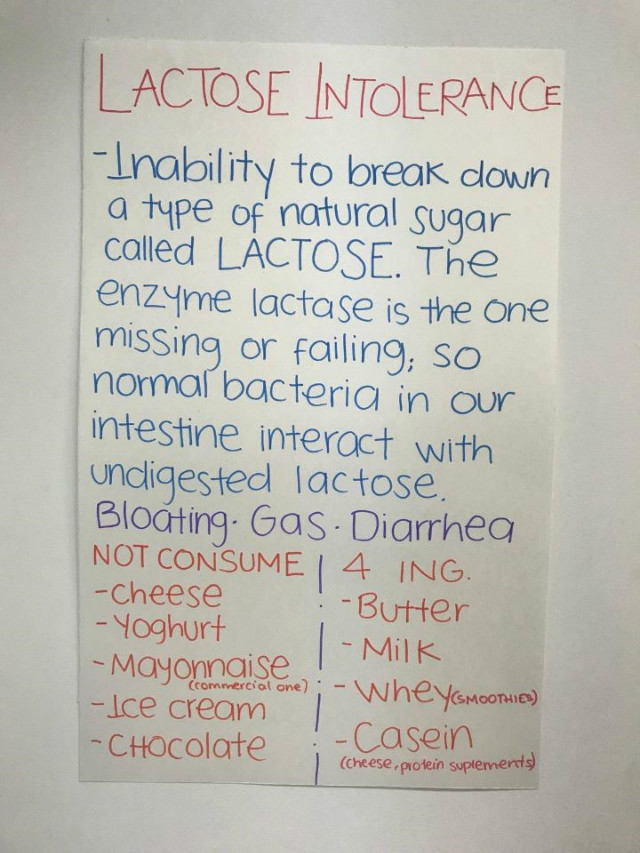 LACTOSE INTOLERANCE
-Inability to break down
a type of natural sugar
called LACTOSE. The
enzyme lactase is the one
missing or failing; so
normal bacteria in our
intestine interact with
undigested lactose.
Bloating · Gas · Diarrhea
NOT CONSUME
-Cheese
-Yoghurt
-Mayonnaise
(commercial one)
-Ice cream
-CHOcolate
4 ING.
-Butter
-Milk
-Whey (SMOOTHIES)
-Casein
(cheese, protein suplements)